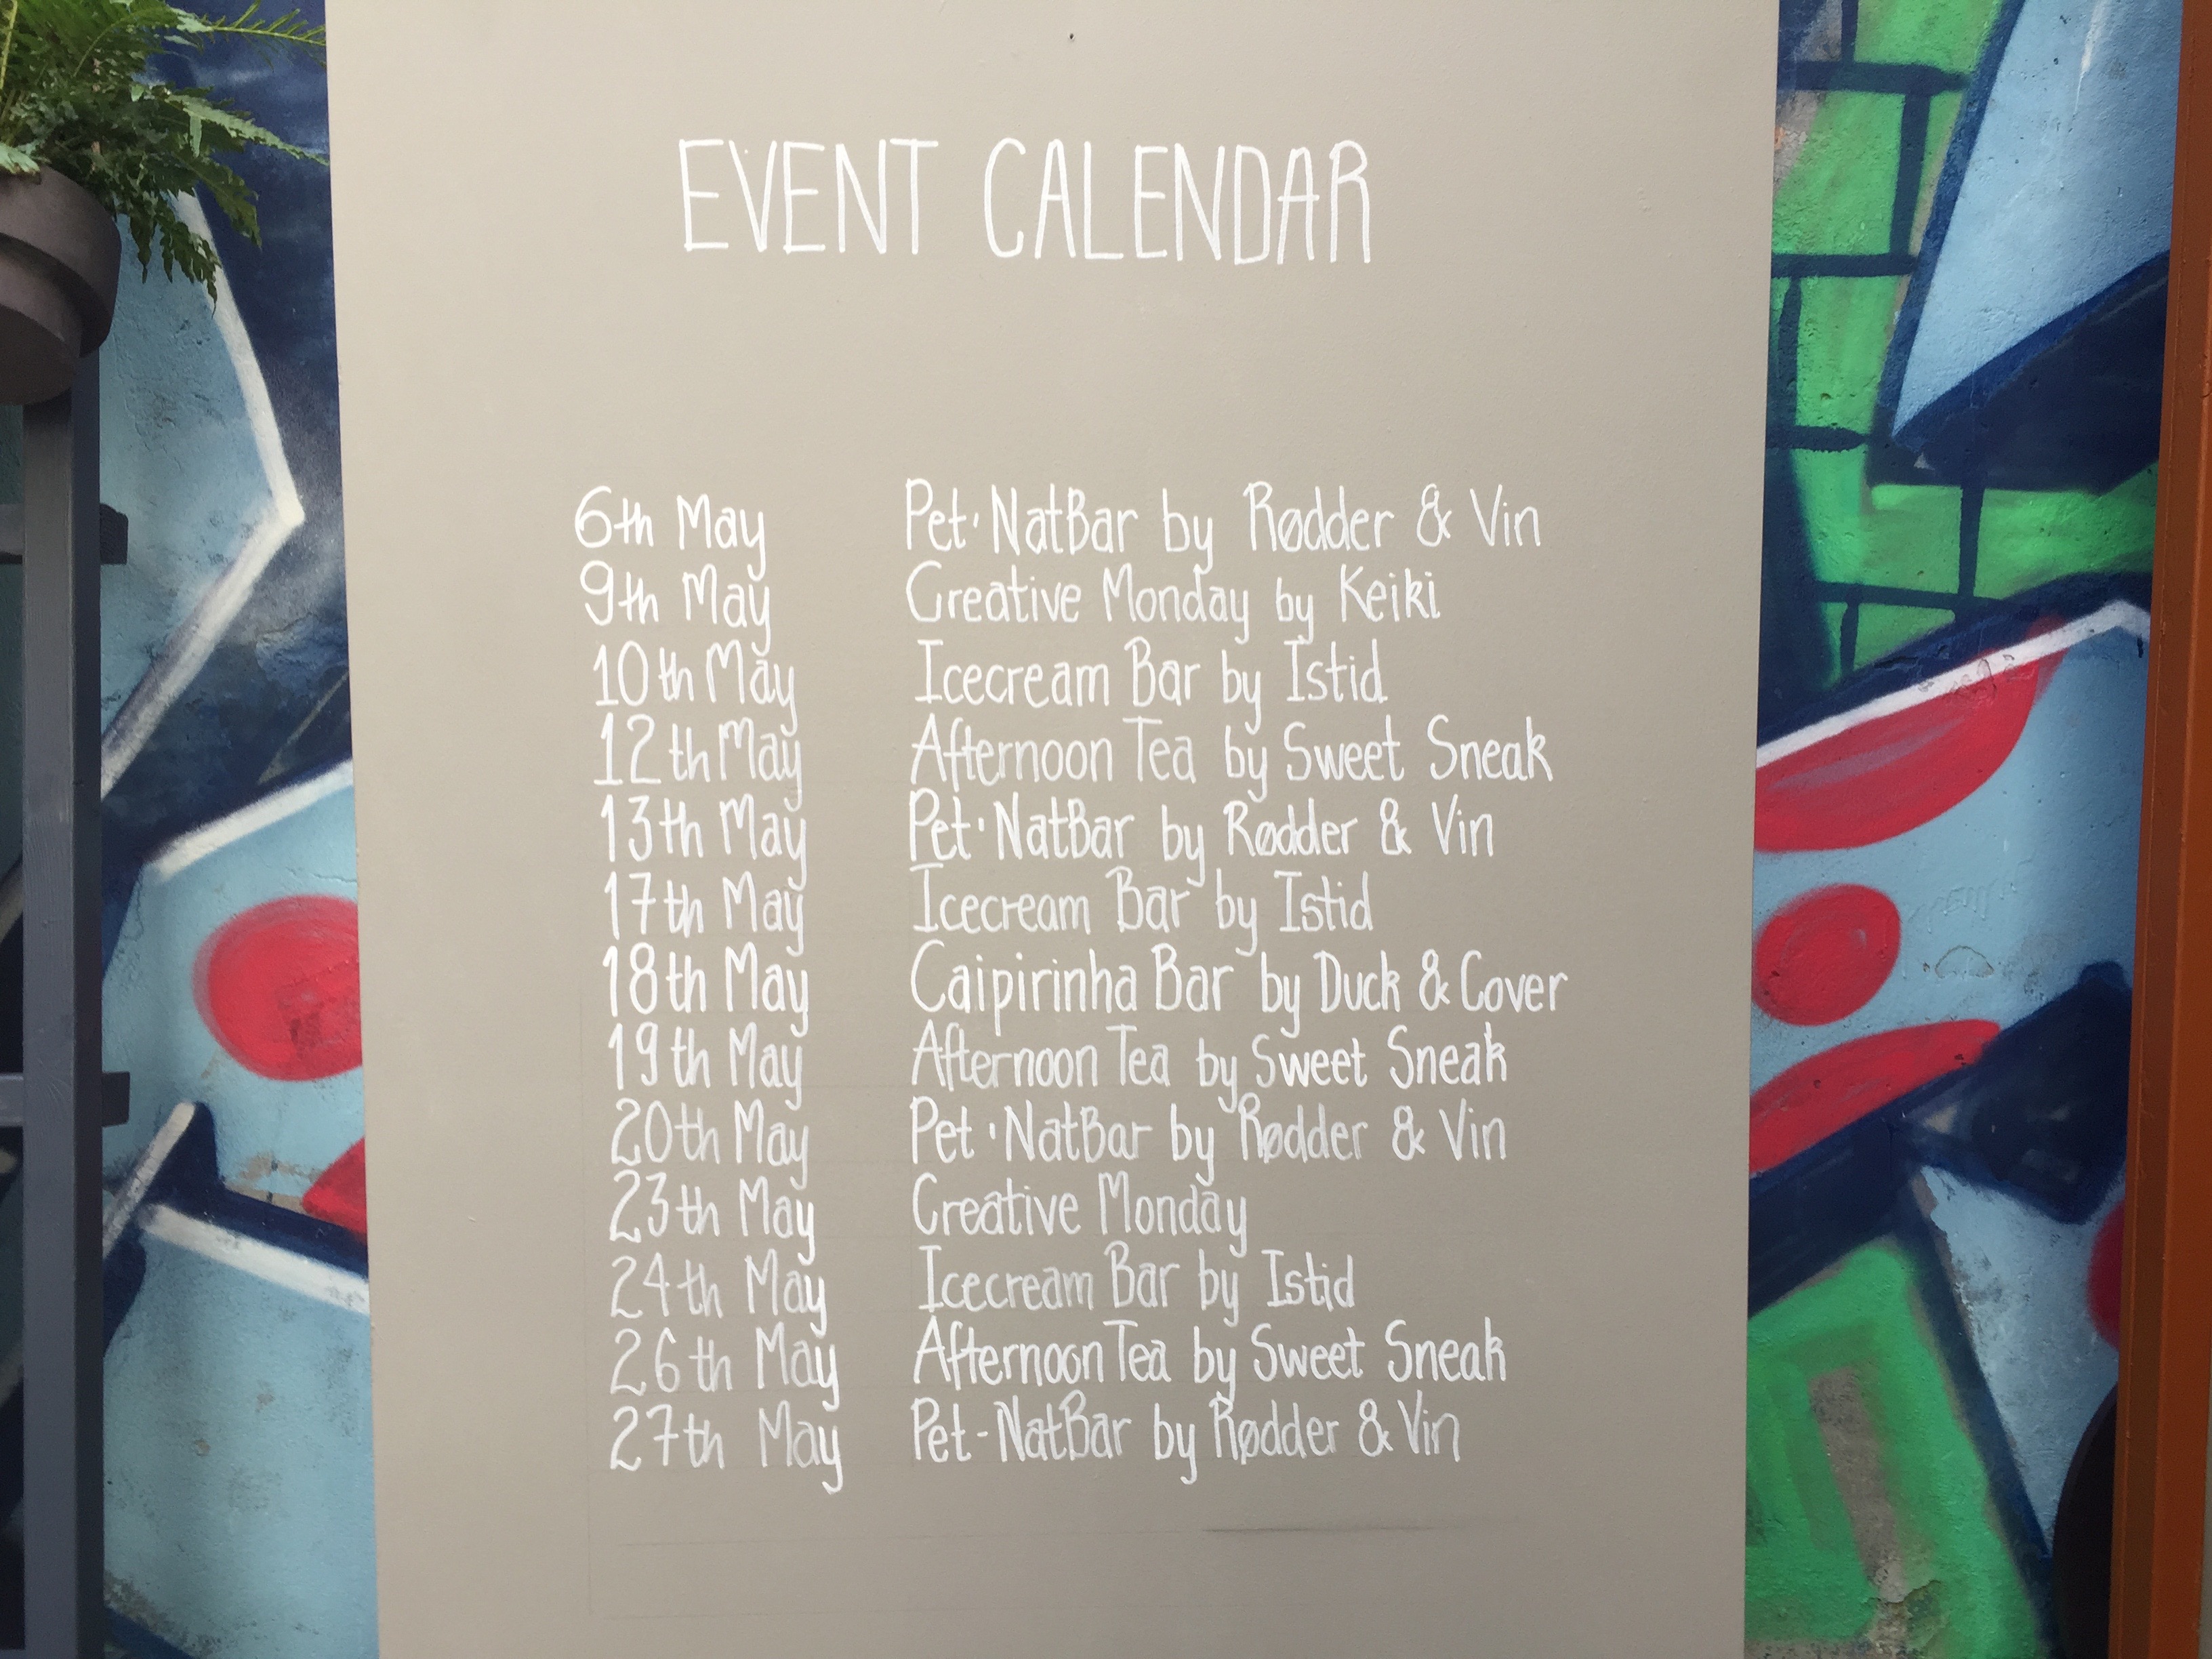 EVENT CALENDAR
6th May Pet·NatBar by Rødder & Vin
9th May Creative Monday by Keiki
10th May Icecream Bar by Istid
12th May Afternoon Tea by Sweet Sneak
13th May Pet·NatBar by Rødder & Vin
17th May Icecream Bar by Istid
18th May Caipirinha Bar by Duck & Cover
19th May Afternoon Tea by Sweet Sneak
20th May Pet·NatBar by Rødder & Vin
23th May Creative Monday
24th May Icecream Bar by Istid
26th May Afternoon Tea by Sweet Sneak
27th May Pet-NatBar by Rødder & Vin